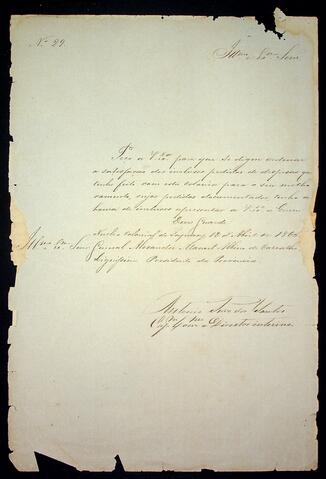 Nº 29.
Illmo Exmo Senr
Peço a V Exa para que se digne ordenar
a satisfação dos inclusos pedidos de despesas que
tenho feito com esta colonia para o seu melho
ramento, cujos pedidos documentados tenho a
honra de inclusos apresentar a V Exa a Quem
Deos Guarde
Nucleo Colonial de 12 de de 186
Illmo Exmo Senr Coronel Alexandre Manoel Albino de Carvalho
Dignissimo Presidente da Provincia
Antonio João dos Santos
Cap Comte e Director interino